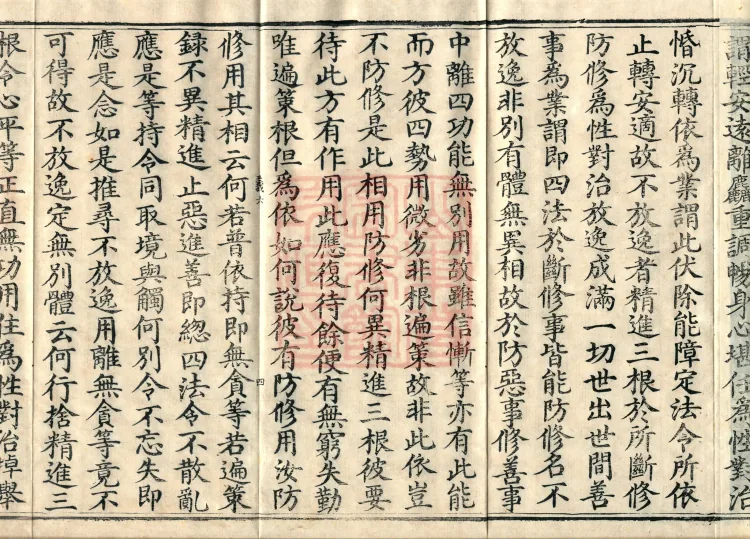 謂輕安遠離麤重調暢身心堪任為性對治
惛沉轉依為業謂此伏除能障定法令所依
止轉安適故不放逸者精進三根於所斷修
防修為性對治放逸成滿一切世出世間善
事為業謂即四法於斷修事皆能防修名不
放逸非別有體無異相故於防惡事修善事
中離四功能無別用故雖信慚等亦有此能
而方彼四勢用微劣非根遍策故非此依豈
不防修是此相用防修何異精進三根彼要
待此方有作用此應復待餘便有無窮失勤
唯遍策根但為依如何說彼有防修用汝防
義六
四
修用其相云何若普依持即無貪等若遍策
録不異精進止惡進善即緫四法令不散亂
應是等持令同取境與觸何別令不忘失即
應是念如是推尋不放逸用離無貪等竟不
可得故不放逸定無別體云何行捨精進三
根令心平等正直無功用住為性對治掉舉